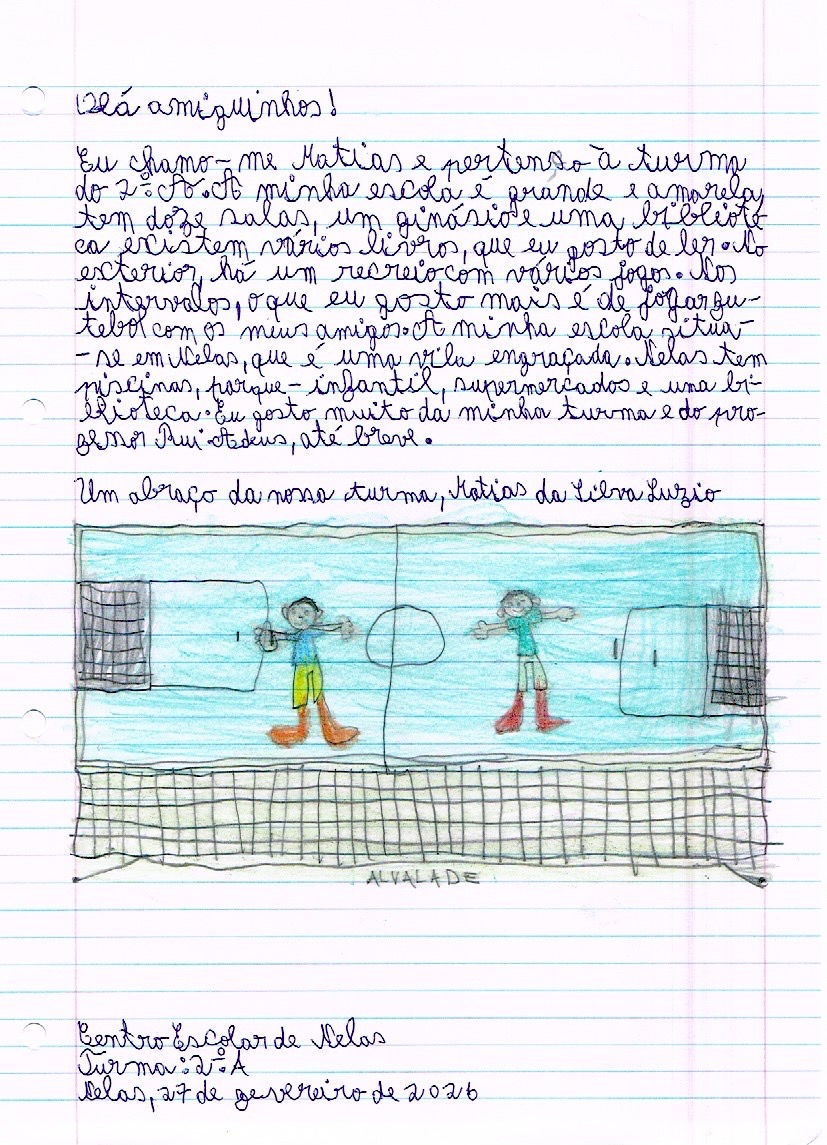 Olá amiguinhos!
Eu chamo-me Matias e pertenso à turma
do 2.º A. A minha escola é grande e amarela,
tem doze salas, um ginásio e uma bibliote
ca existem vários livros, que eu gosto de ler. No
exterior, há um recreio com vários jogos. Nos
intervalos, o que eu gosto mais é de jogar fu-
tebol com os meus amigos. A minha escola situa-
-se em Nelas, que é uma vila engraçada. Nelas tem
piscinas, parque-infantil, supermercados e uma bi-
blioteca. Eu gosto muito da minha turma e do pro-
fessor Rui. Adeus, até breve.
Um abraço da nossa turma, Matias da Silva Luzio
ALVALADE
Centro Escolar de Nelas
Turma: 2.º A
Nelas, 27 de fevereiro de 2026